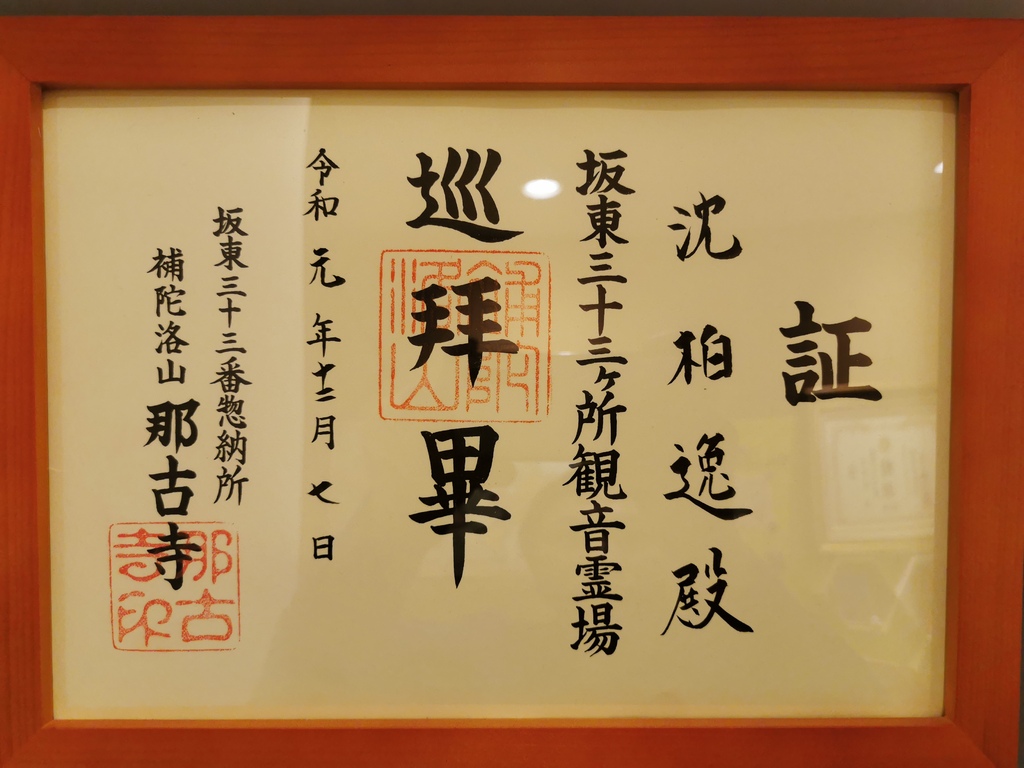 証
沈柏逸殿
坂東三十三ヶ所観音霊場
巡拝畢
令和元年十二月七日
坂東三十三番惣納所
補陀洛山那古寺
那古寺印